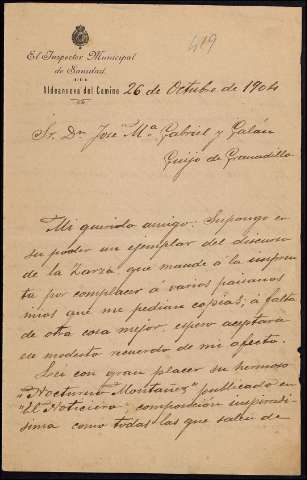 419
El Inspector Municipal
de Sanidad
Aldeanueva del Camino 26 de Octubre de 1904
Sr. Dn José Mª Gabriel y Galán
Guijo de Granadilla
Mi querido amigo: Supongo en
su poder un ejemplar del discurso
de la Zarza que mandé á la impren
ta por complacer á varios paisanos
mios que me pedian copias; á falta
de otra cosa mejor, espero aceptará
ese modesto recuerdo de mi afecto.
Leí con gran placer su hermoso
"Nocturno Montañez" publicado en
"El Noticiero", composición inspiradi-
sima como todas las que salen de